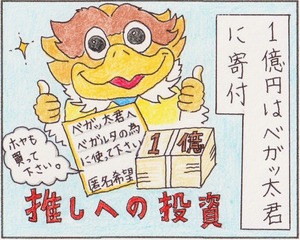 1億円はベガッ太君
に寄付
ベガッ太君へ
ベガルタの為
に使って下さい
匿名希望
ホヤも
買って
下さい。
1億
推しへの投資